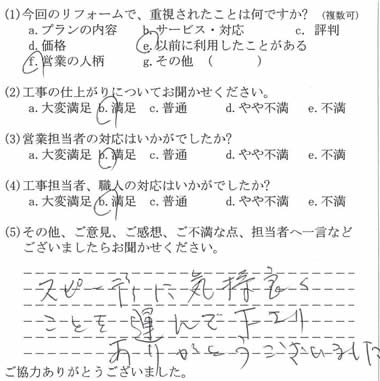 (1)今回のリフォームで、重視されたことは何ですか? (複数可)
a.プランの内容 b.サービス・対応 c.評判
d.価格 e.以前に利用したことがある
f.営業の人柄 g.その他 ( )
(2)工事の仕上がりについてお聞かせください。
a.大変満足 b.満足 c.普通 d.やや不満 e.不満
(3)営業担当者の対応はいかがでしたか?
a.大変満足 b.満足 c.普通 d.やや不満 e.不満
(4)工事担当者、職人の対応はいかがでしたか?
a.大変満足 b.満足 c.普通 d.やや不満 e.不満
(5)その他、ご意見、ご感想、ご不満な点、担当者へ一言など
ございましたらお聞かせください。
スピーディに気持良く
ことを運んで下さり
ありがとうございました
ご協力ありがとうございました。